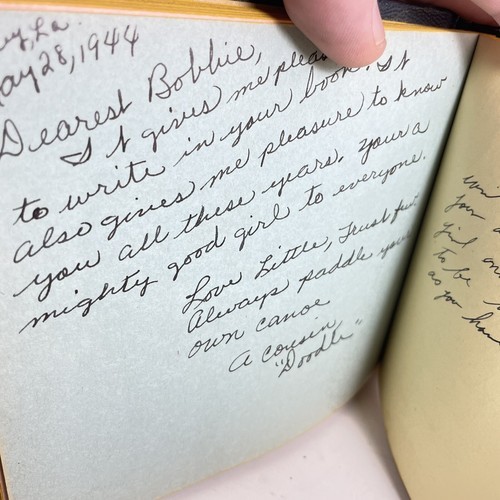 y, La.
ay 28, 1944
Dearest Bobbie,
It gives me pleas
to write in your book. It
also gives me pleasure to know
you all these years. Your a
mighty good girl to everyone.
Love Little, Trust few
Always paddle your
own canoe
A cousin
"Doodle"
you
girl
to be
as you